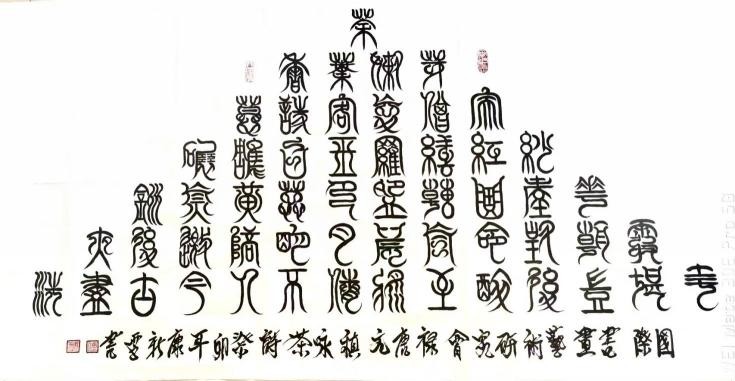 茶
香葉嫩芽
慕詩客愛僧家
碾雕白玉羅織紅紗
銚煎黃蕊色盌轉麴塵花
夜後邀陪明月晨前命對朝霞
洗盡古今人不倦將至醉後豈堪夸
國際書畫藝術研究會録唐元稹咏茶詩癸卯年康新雪書
WEI Mate 20E Pro 5G